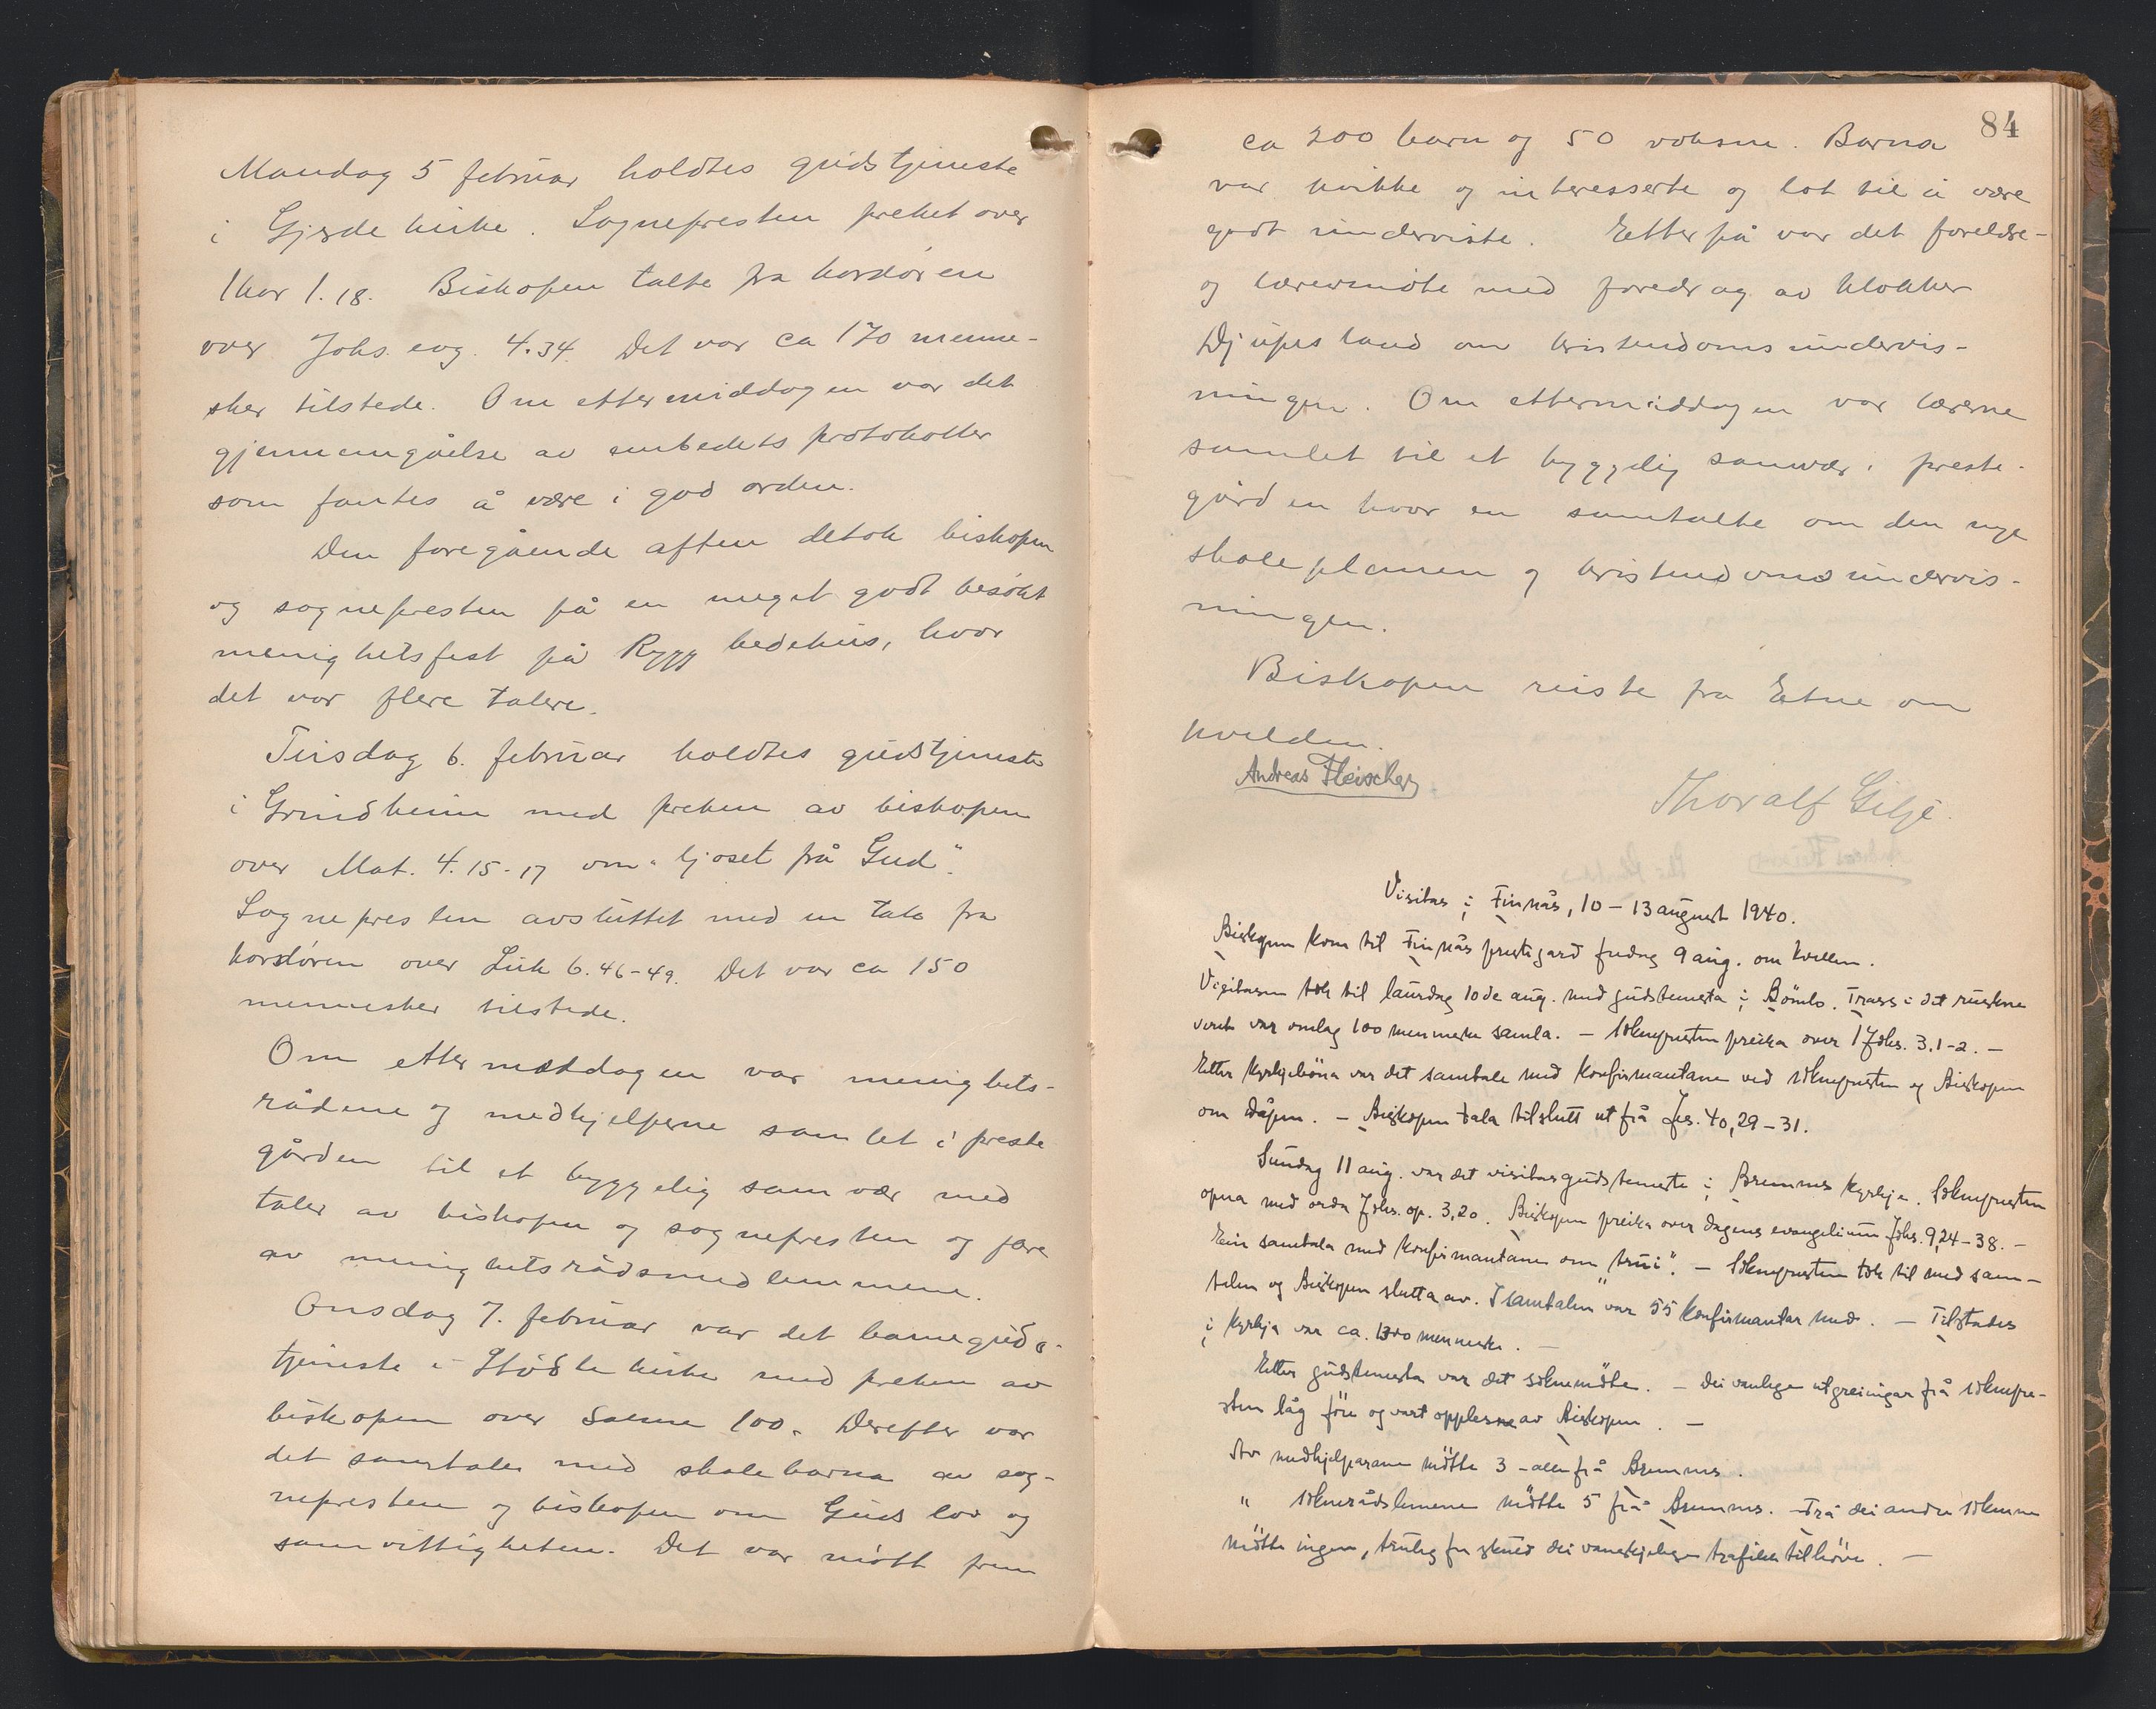 Mandag 5 februar holdtes gudstjeneste
i Gjerde kirke. Sognepresten preket over
1 kor 1.18. Biskopen talte fra kordøren
over Johs. evg. 4.34. Det var ca 170 menne-
sker tilstede. Om ettermiddagen var det
gjennemgåelse av embedets protokoller
som fantes å være i god orden.
Den foregående aften deltok biskopen
og sognepresten på en meget godt besøkt
menighetsfest på Rygg bedehus, hvor
det var flere talere.
Tirsdag 6. februar holdtes gudstjeneste
i Grindheim med preken av biskopen
over Mat. 4.15-17 om "ljoset frå Gud".
Sognepresten avsluttet med en tale fra
kordøren over Luk 6.46-49. Det var ca 150
mennesker tilstede.
Om ettermiddagen var menighets-
rådene og medhjelperne samlet i preste
gården til et hyggelig samvær med
taler av biskopen og sognepresten og flere
av menighetsrådsmedlemmene.
Onsdag 7. februar var det barneguds-
tjeneste i Stødle kirke med preken av
biskopen over Salme 100. Derefter var
det samtaler med skolebarna av sog-
nepresten og biskopen om Guds lov og
samvittigheten. Det var møtt frem
84
ca 200 barn og 50 voksne. Barna
var kvikke og interesserte og lot til å være
godt underviste. Etterpå var det foreldre-
og lærermøte med foredrag av klokker
Djupesland om kristendomsundervis-
ningen. Om ettermiddagen var lærerne
samlet til et hyggelig samvær i preste-
gården hvor en samtalte om den nye
skoleplanen og kristendomsundervis-
ningen.
Biskopen reiste fra Etne om
kvelden.
Andreas Fleischer
Thoralf Gilje.
Visitas i Finnås, 10-13 august 1940.
Biskopen kom til Finnås prestegard fredag 9 aug. om kvelden.
Visitasen tok til laurdag 10de aug. med gudstenesta i Bömlo. Trass i det ruskne
veret var omlag 100 menneske samla. - Sokнepresten preika over 1 Johs. 3,1-2. -
Etter kyrkjebøna var det samtale med konfirmantane ved soknepresten og Biskopen
om dåpen. - Biskopen tala tilslutt ut frå Jes. 40,29-31.
Sundag 11 aug. var det visitasgudsteneste i Bremnes kyrkje. Soknepresten
opna med orda Johs. op. 3,20. Biskopen preika over dagens evangelium Johs. 9,24-38. -
Ein samtala med konfirmantane om "trui". - Soknepresten tok til med sam-
talen og Biskopen slutta av. I samtalen var 55 konfirmantar med. - Tilstades
i kyrkja var ca. 1300 menneske. -
Etter gudstenesta var det soknemöte. - Dei vanlege utgreiingar frå soknepre-
sten låg före og vart opplesne av Biskopen. -
Av medhjelparane mötte 3 - alle frå Bremnes.
" soknerådslemene mötte 5 frå Bremnes. - Frå dei andre soknene
mötte ingen, truleg for skuld dei vanskjelege trafikktilhöve. -